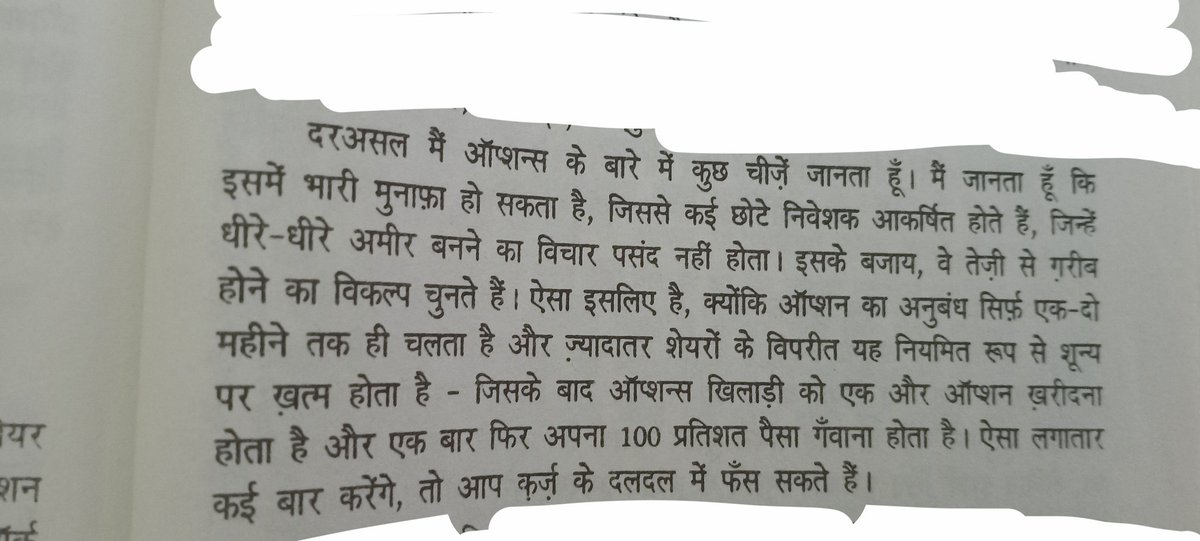 दरअसल मैं ऑप्शन्स के बारे में कुछ चीज़ें जानता हूँ। मैं जानता हूँ कि
इसमें भारी मुनाफ़ा हो सकता है, जिससे कई छोटे निवेशक आकर्षित होते हैं, जिन्हें
धीरे-धीरे अमीर बनने का विचार पसंद नहीं होता। इसके बजाय, वे तेज़ी से ग़रीब
होने का विकल्प चुनते हैं। ऐसा इसलिए है, क्योंकि ऑप्शन का अनुबंध सिर्फ़ एक-दो
महीने तक ही चलता है और ज़्यादातर शेयरों के विपरीत यह नियमित रूप से शून्य
पर ख़त्म होता है - जिसके बाद ऑप्शन्स खिलाड़ी को एक और ऑप्शन ख़रीदना
होता है और एक बार फिर अपना 100 प्रतिशत पैसा गँवाना होता है। ऐसा लगातार
कई बार करेंगे, तो आप क़र्ज़ के दलदल में फँस सकते हैं।